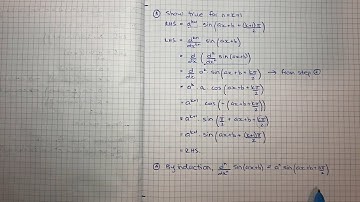 ③ Show true for n=k+1
RHS = a^(k+1) sin(ax+b+(k+1)π/2)
LHS = d^(k+1)/dx^(k+1) sin(ax+b)
= d/dx (d^k/dx^k sin(ax+b))
= d/dx a^k sin(ax+b+kπ/2) → from step ②
= a^k · a cos(ax+b+kπ/2)
= a^(k+1) · cos(-(ax+b+kπ/2))
= a^(k+1) · sin(π/2 + ax+b+kπ/2)
= a^(k+1) · sin(ax+b+(k+1)π/2)
= RHS.
④ By induction, d^n/dx^n sin(ax+b) = a^n sin(ax+b+nπ/2)